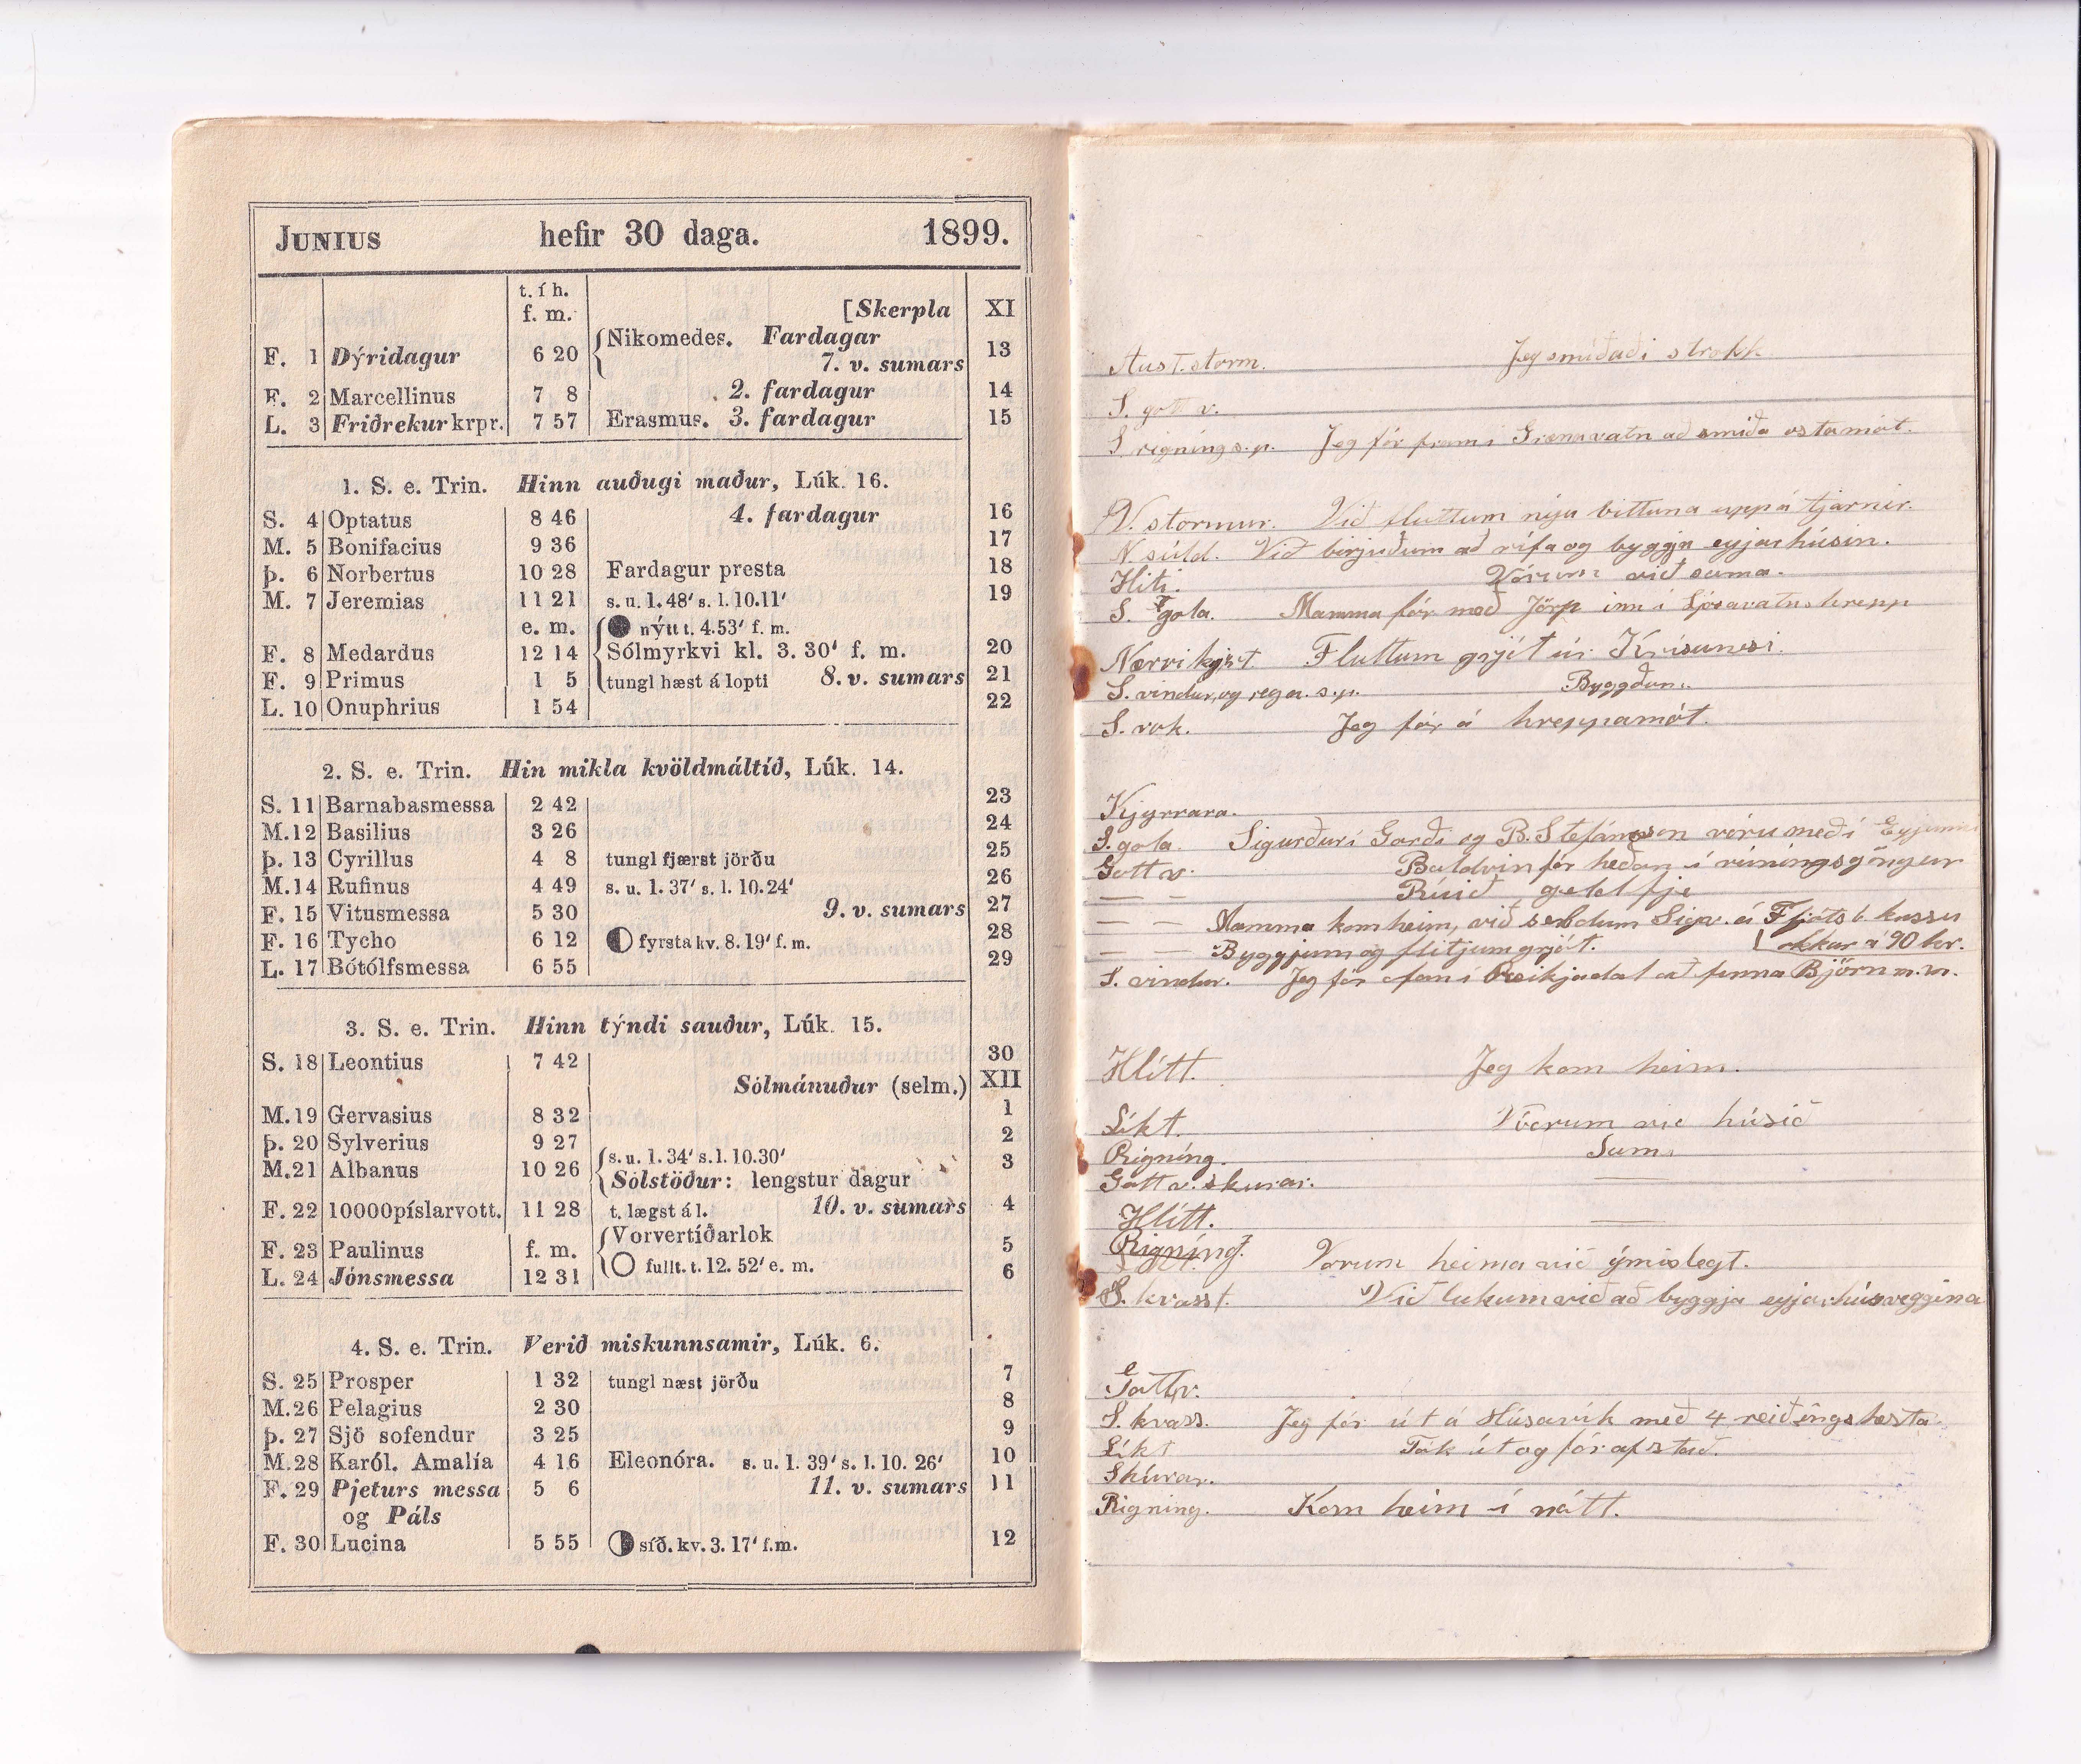 JUNIUS hefir 30 daga. 1899.
t. í h.
f. m. [Skerpla XI
F. 1 Dýridagur 6 20 Nikomedes. Fardagar 13
7. v. sumars
F. 2 Marcellinus 7 8 2. fardagur 14
L. 3 Friðrekur krpr. 7 57 Erasmus. 3. fardagur 15
1. S. e. Trin. Hinn auðugi maður, Lúk. 16.
S. 4 Optatus 8 46 4. fardagur 16
M. 5 Bonifacius 9 36 17
Þ. 6 Norbertus 10 28 Fardagur presta 18
M. 7 Jeremias 11 21 s. u. 1. 48' s. l. 10.11' 19
e. m. nýtt t. 4.53' f. m.
F. 8 Medardus 12 14 Sólmyrkvi kl. 3. 30' f. m. 20
F. 9 Primus 1 5 tungl hæst á lopti 8. v. sumars 21
L. 10 Onuphrius 1 54 22
2. S. e. Trin. Hin mikla kvöldmáltíð, Lúk. 14.
S. 11 Barnabasmessa 2 42 23
M. 12 Basilius 3 26 24
Þ. 13 Cyrillus 4 8 tungl fjærst jörðu 25
M. 14 Rufinus 4 49 s. u. 1. 37' s. l. 10.24' 26
F. 15 Vitusmessa 5 30 9. v. sumars 27
F. 16 Tycho 6 12 fyrsta kv. 8. 19' f. m. 28
L. 17 Bótólfsmessa 6 55 29
3. S. e. Trin. Hinn týndi sauður, Lúk. 15.
S. 18 Leontius 7 42 30
Sólmánuður (selm.) XII
M. 19 Gervasius 8 32 1
Þ. 20 Sylverius 9 27 2
M. 21 Albanus 10 26 s. u. 1. 34' s. l. 10.30' 3
Sólstöður: lengstur dagur
F. 22 10000píslarvott. 11 28 t. lægst á l. 10. v. sumars 4
F. 23 Paulinus f. m. Vorvertíðarlok 5
L. 24 Jónsmessa 12 31 fullt. t. 12. 52' e. m. 6
4. S. e. Trin. Verið miskunnsamir, Lúk. 6.
S. 25 Prosper 1 32 tungl næst jörðu 7
M. 26 Pelagius 2 30 8
Þ. 27 Sjö sofendur 3 25 9
M. 28 Karól. Amalía 4 16 Eleonóra. s. u. 1. 39' s. l. 10. 26' 10
F. 29 Pjeturs messa 5 6 11. v. sumars 11
og Páls
F. 30 Lucina 5 55 síð. kv. 3. 17' f. m. 12
Aust. storm. Jeg smíðaði strokk
S. gott v.
S. rigning s.p. Jeg fór fram í Grænavatn að smíða ostamót.
V. stormur. Við fluttum nýu bittuna uppá tjarnir.
N súld. Við birjuðum að rífa og byggja eyjarhúsin.
Hiti. Vórum við sama.
S. gola. Mamma fór með Jörp inn í Ljósavatnshrepp
Nærvikyrt Fluttum grjót úr Krísunesi.
S. vindur, og regn s.p. Byggðum.
S. rok. Jeg fór á hreppamót.
Kjyrrara.
S. gola. Sigurður í Garði og B. Stefánsson vóru með í Eyjunni
Gott v. Baldvin fór héðan í rúningsgöngur
— — Rúið geldfje
— — Mamma kom heim, við seldum Sigr. á Fljóts b. kussu
— — Byggjum og flitjum grjót. okkur á 90 kr.
S. vindur. Jeg fór ofan í Reikjadal að finna Björn m.m.
Hlítt. Jeg kom heim.
Líkt. Vórum við húsið
Rigning. Sama
Gott v. skurar. —
Hlítt. —
Rigning. Vorum heima við ýmislegt.
S. kvasst. Við lukum við að byggja eyjarhúsveggina
Gott v.
S. kvass. Jeg fór út á Húsavík með 4 reiðingshesta
Líkt Tók út og fór af stað.
Skúrar.
Rigning. Kom heim í nátt.